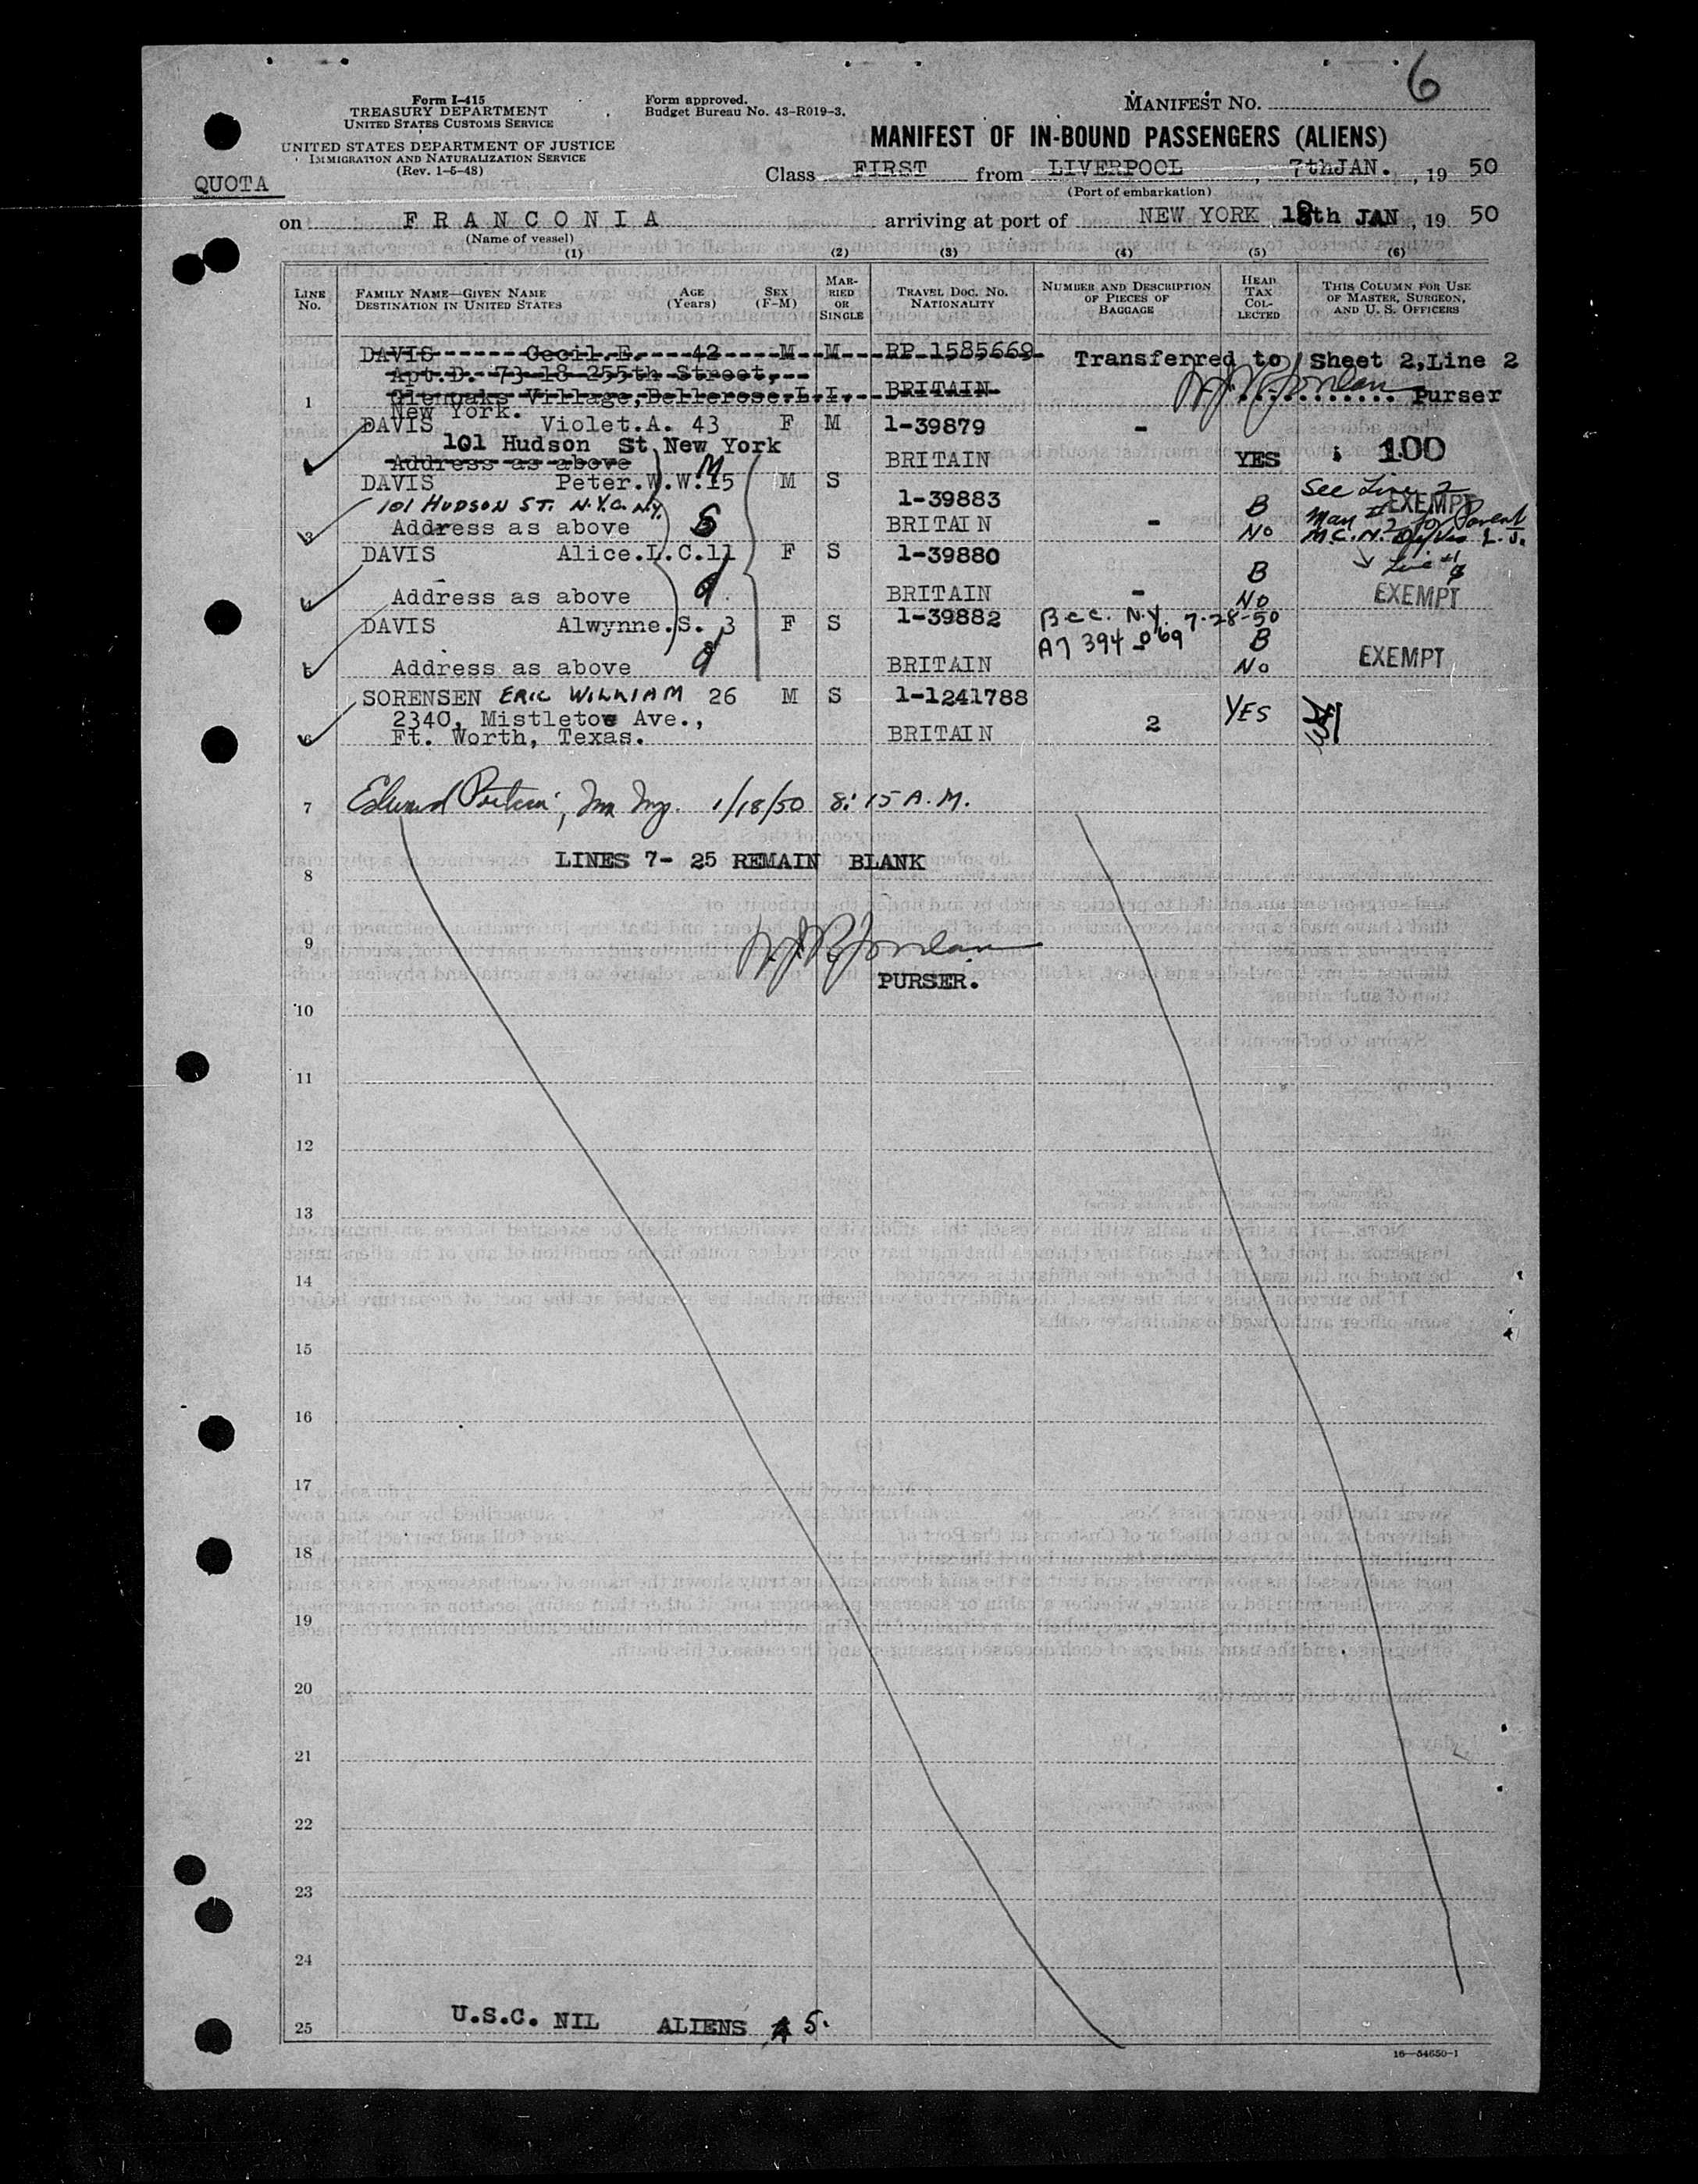 6
Form I-415
TREASURY DEPARTMENT
UNITED STATES CUSTOMS SERVICE
UNITED STATES DEPARTMENT OF JUSTICE
IMMIGRATION AND NATURALIZATION SERVICE
(Rev. 1-5-48)
Form approved.
Budget Bureau No. 43-R019-3.
MANIFEST NO.
MANIFEST OF IN-BOUND PASSENGERS (ALIENS)
QUOTA
Class FIRST from LIVERPOOL, 7thJAN., 19 50
(Port of embarkation)
on FRANCONIA arriving at port of NEW YORK 18th JAN, 19 50
(Name of vessel)
(1) (2) (3) (4) (5) (6)
LINE NO. FAMILY NAME—GIVEN NAME DESTINATION IN UNITED STATES AGE (Years) SEX (F-M) MARRIED OR SINGLE TRAVEL DOC. NO. NATIONALITY NUMBER AND DESCRIPTION OF PIECES OF BAGGAGE HEAD TAX COLLECTED THIS COLUMN FOR USE OF MASTER, SURGEON, AND U. S. OFFICERS
DAVIS Cecil.E. 42 M M RP 1585669 Transferred to Sheet 2,Line 2
Apt.D. 73-18 255th Street,
1 Glenoaks Village,Bellerose.L.I. BRITAIN Purser
New York.
DAVIS Violet.A. 43 F M 1-39879 -
101 Hudson St New York
Address as above BRITAIN YES 100
DAVIS Peter.W.W.15 M M S 1-39883 See Line 2 EXEMPT
101 HUDSON ST. N.Y.C. N.Y. B
3 Address as above S BRITAIN - No
DAVIS Alice.L.C.11 F S 1-39880 B
4 Address as above d BRITAIN - No EXEMPT
DAVIS Alwynne.S. 3 F S 1-39882 B.C.C. N.Y. 7-28-50
A7 394 069 B
Address as above d BRITAIN No EXEMPT
SORENSEN ERIC WILLIAM 26 M S 1-1241788 YES
2340, Mistletoe Ave.,
6 Ft. Worth, Texas. BRITAIN 2
7 Edward 1/18/50 8:15 A.M.
LINES 7- 25 REMAIN BLANK
8
9
PURSER.
10
11
12
13
14
15
16
17
18
19
20
21
22
23
24
25 U.S.C. NIL ALIENS 5.
16—54650-1